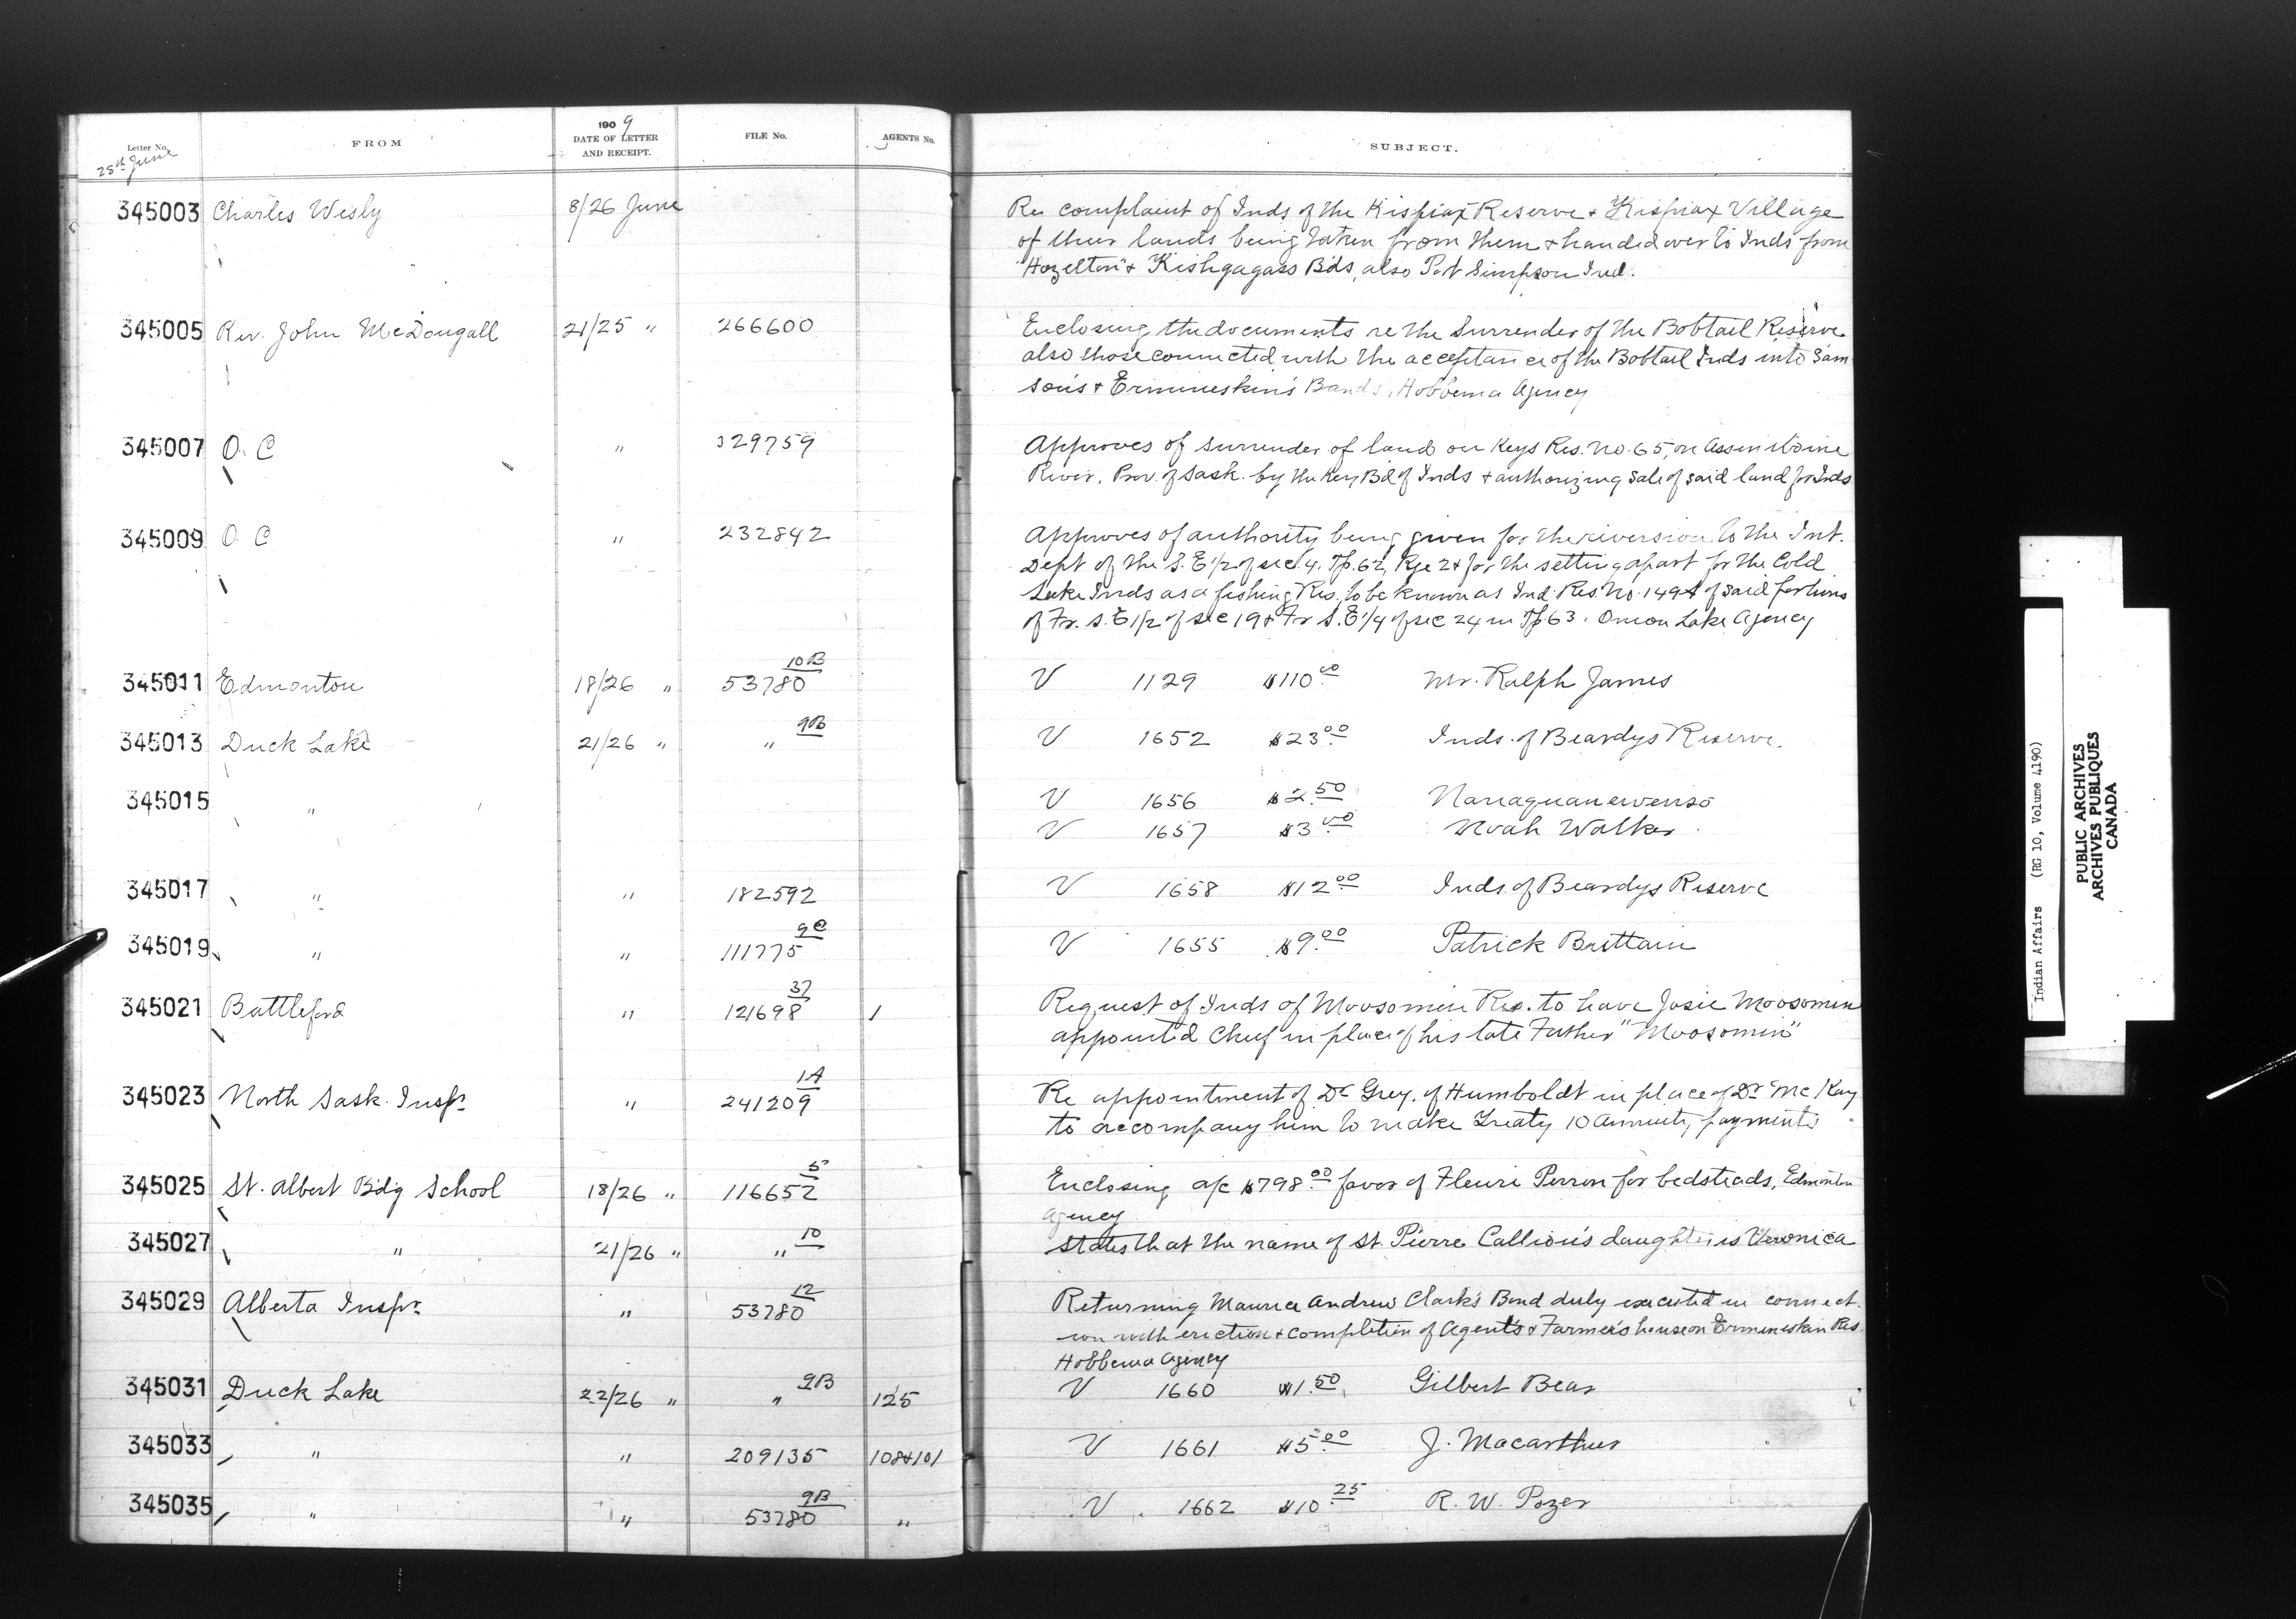 Letter No.
28th June
FROM
1909
DATE OF LETTER
AND RECEIPT.
FILE No.
AGENTS No.
SUBJECT.
345003 Charles Wesly 8/26 June Re complaint of Inds of the Kispiax Reserve & Kispiax Village
of their lands being taken from them & handed over to Inds from
"Hazelton" & Kishgagass Bds, also Port Simpson Ind.
345005 Rev. John McDougall 21/25 " 266600 Enclosing the documents re the Surrender of the Bobtail Reserve
also those connected with the acceptance of the Bobtail Inds into Sam
son's & Ermineskin's Bands, Hobbema Agency
345007 O. C " 329759 Approves of surrender of land on Keys Res. No. 65, on Assiniboine
River, Prov. of Sask. by the Key Bd of Inds & authorizing sale of said land for Inds
345009 O C " 232842 Approves of authority being given for the reversion to the Int.
Dept of the S. E 1/2 of sec. 4, Tp. 62, Rge 2 & for the setting apart for the Cold
Lake Inds as a fishing Res. to be known as Ind Res No. 149 of said portions
of Fr. S. E 1/2 of sec 19 & Fr S. E 1/4 of sec 24 in Tp 63. Onion Lake Agency
345011 Edmonton 18/26 " 53780 10B V 1129 $110.00 Mr. Ralph James
345013 Duck Lake 21/26 " " 9B V 1652 $23.00 Inds. of Beardys Reserve.
345015 " V 1656 $2.50 Nanaquanewenso
V 1657 $3.00 Noah Walker
345017 " " 182592 V 1658 $12.00 Inds. of Beardys Reserve
345019 " " 111775 9C V 1655 $9.00 Patrick Brittain
345021 Battleford " 121698 37 1 Request of Inds of Moosomin Res. to have Josie Moosomin
appointed Chief in place of his late Father "Moosomin"
345023 North Sask. Inspr. " 241209 1A Re appointment of Dr Grey, of Humboldt in place of Dr McKay
to accompany him to make Treaty 10 Annuity payments
345025 St. Albert Bdg School 18/26 " 116652 5 Enclosing a/c $798.00 favor of Fleuri Perron for bedsteads, Edmonton
Agency
345027 " 21/26 " " 10 States that the name of St. Pierre Callion's daughter is Veronica
345029 Alberta Inspr. " 53780 12 Returning Maurice Andrew Clark's Bond duly executed in connect
ion with erection & completion of Agent's & Farmer's house on Ermineskin Res.
Hobbema Agency
345031 Duck Lake 22/26 " " 9B 125 V 1660 $1.50 Gilbert Bear
345033 " " 209135 108&101 V 1661 $5.00 J. Macarthur
345035 " " 53780 9B " V 1662 $10.25 R. W. Pozer
Indian Affairs (RG 10, Volume 4190)
PUBLIC ARCHIVES
ARCHIVES PUBLIQUES
CANADA